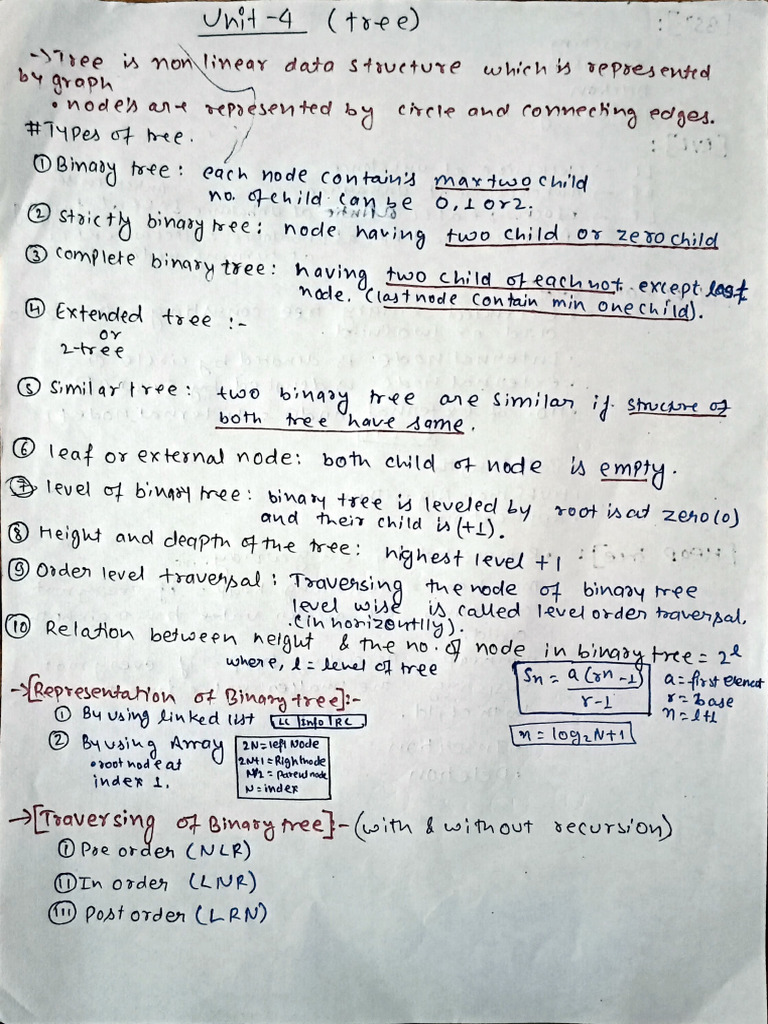 Unit-4 (tree)
→Tree is non linear data structure which is represented
by graph
• node's are represented by circle and connecting edges.
#Types of tree.
① Binary tree: each node contain's max two child
no. of child can be 0,1 or 2.
② Strictly binary tree: node having two child or zero child
③ Complete binary tree: having two child of each not except last
node. (last node contain min one child).
④ Extended tree :-
or
2-tree
⑤ Similar tree: two binary tree are similar if structure of
both tree have same.
⑥ leaf or external node: both child of node is empty.
⑦ level of binary tree: binary tree is leveled by root is at zero(0)
and their child is (+1).
⑧ Height and deapth of the tree: highest level +1
⑨ Order level traversal: Traversing the node of binary tree
level wise is called level order traversal.
(in horizontlly).
⑩ Relation between height & the no. of node in binary tree = 2^l
where, l = level of tree
Sn = a(r^n -1) / r-1
a = first element
r = base
n = l+1
n = log₂N+1
→[Representation of Binary tree]:-
① By using linked list LC | Info | RC
② By using Array
• root node at
index 1.
2N = left Node
2N+1 = Right node
N/2 = Parent node
N = index
→[Traversing of Binary tree]:- (with & without recursion)
① Pre order (NLR)
② In order (LNR)
③ Post order (LRN)